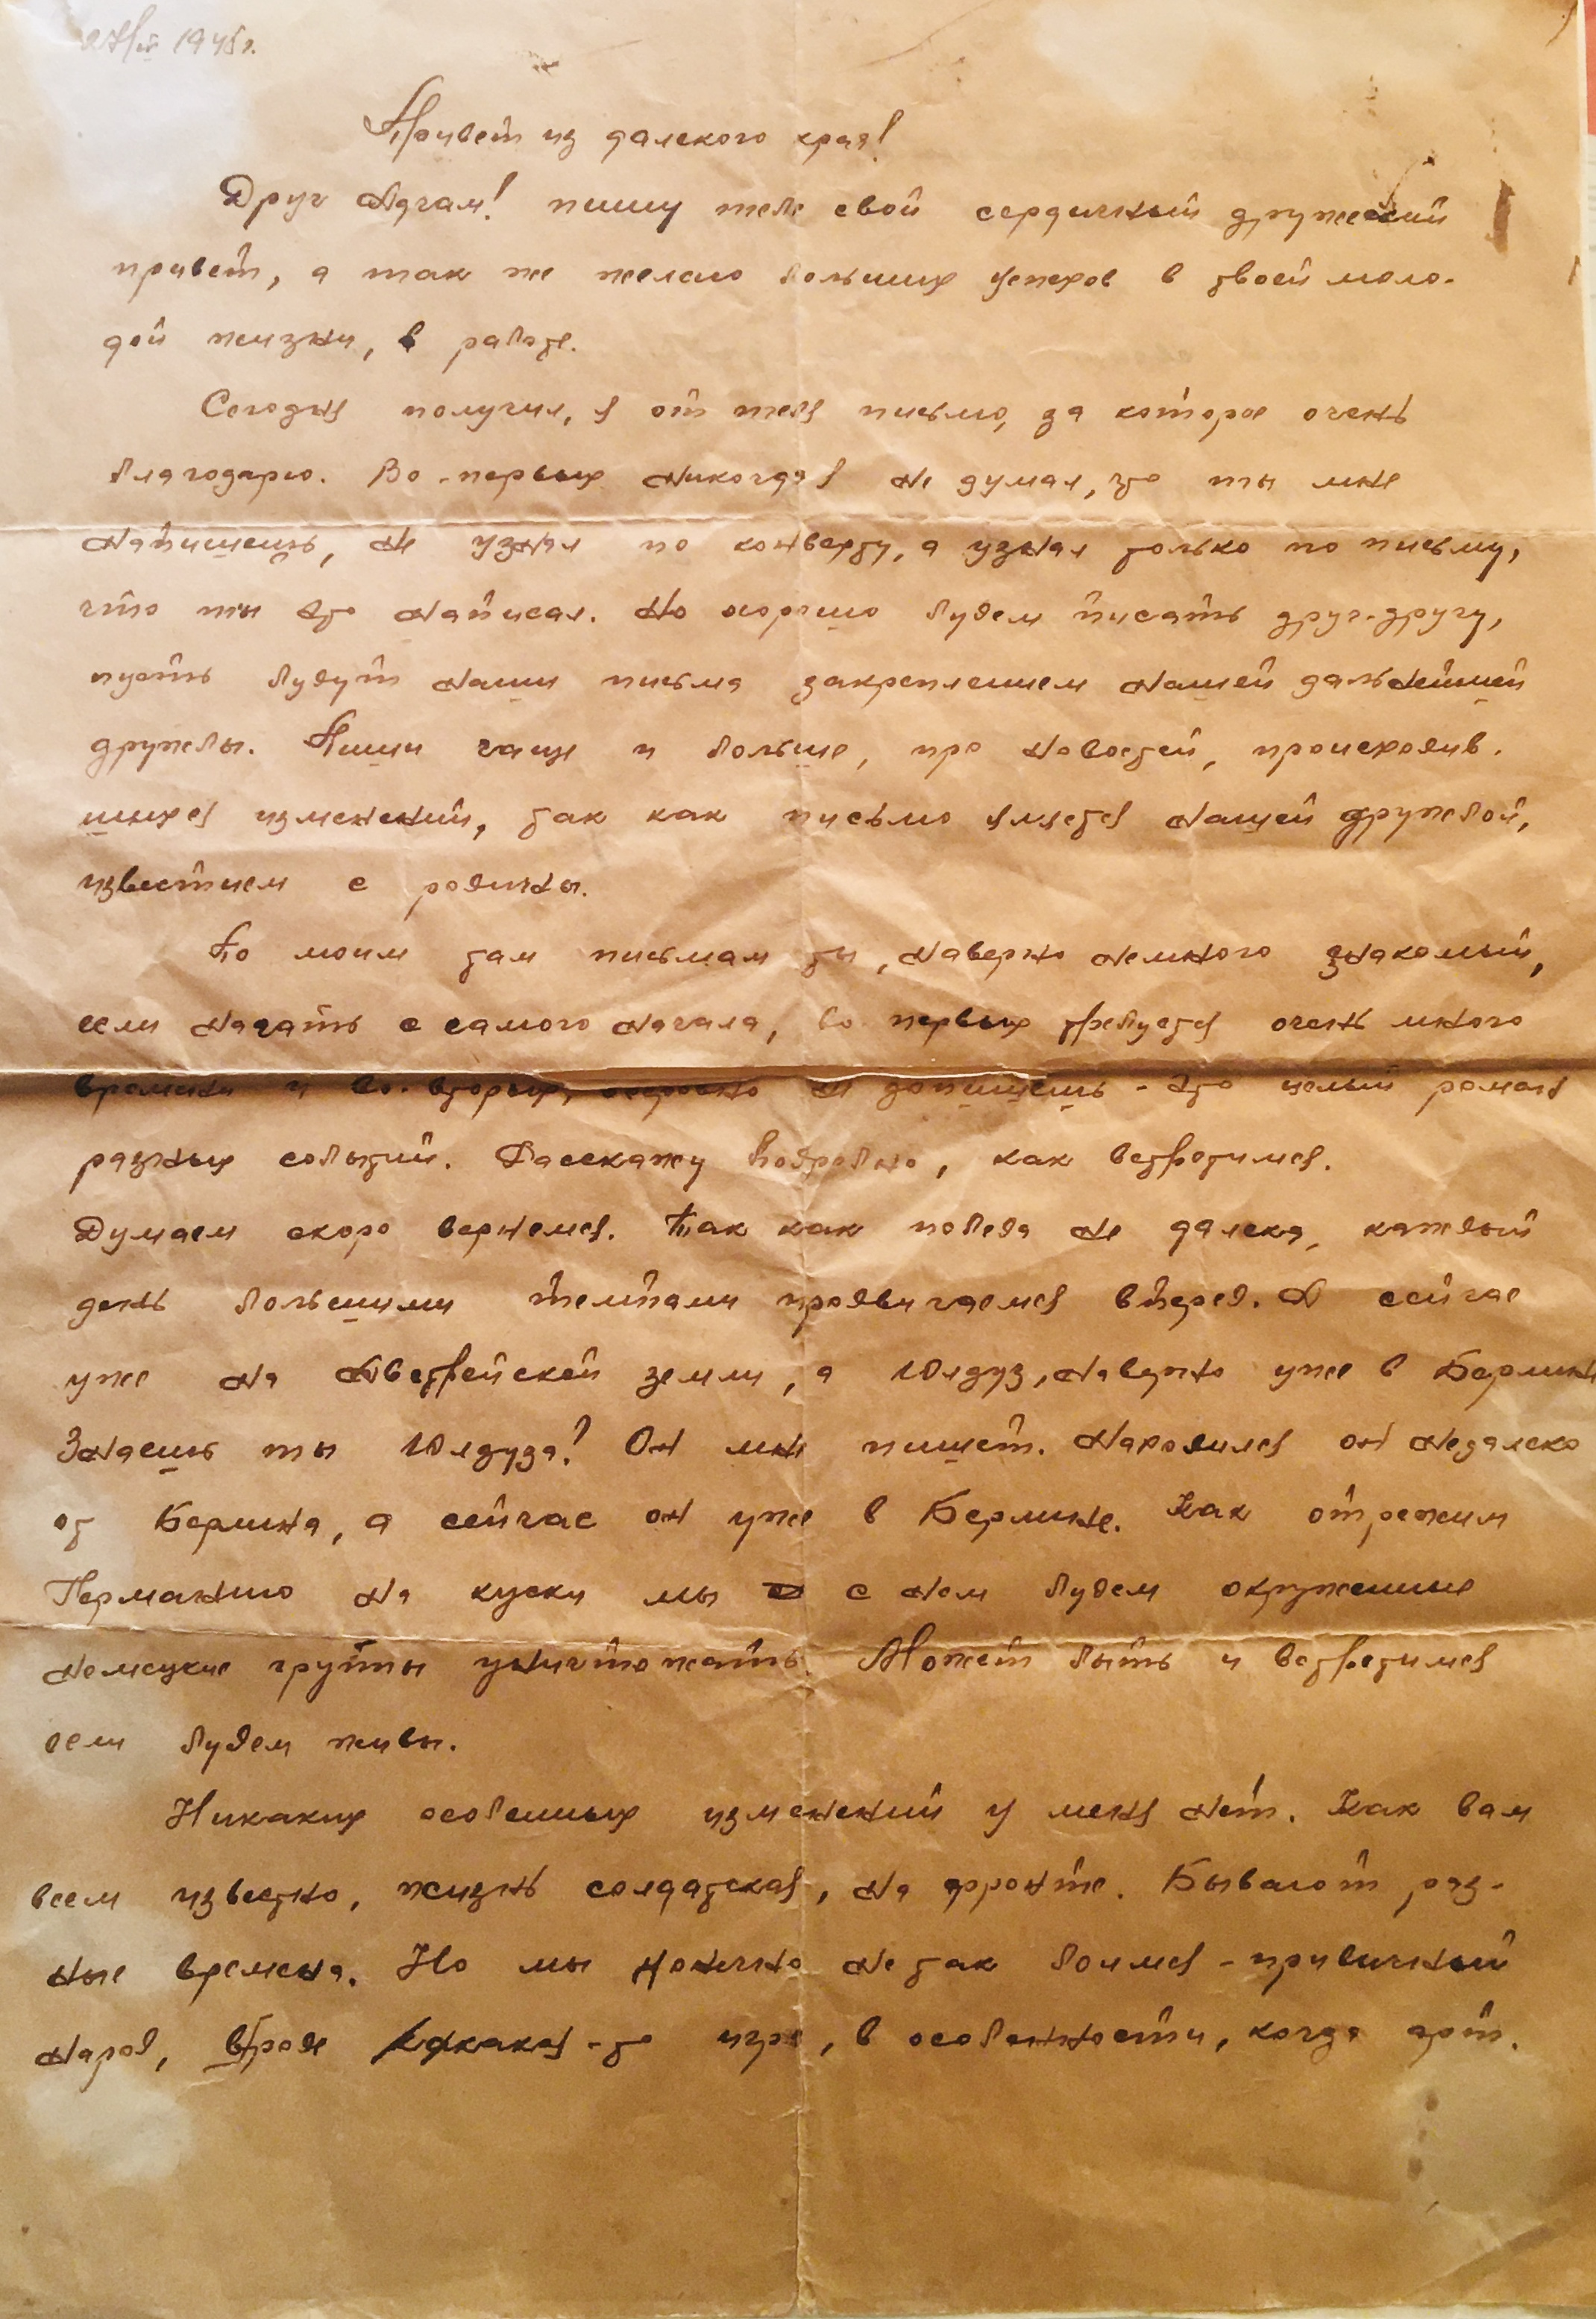 1945 г.
Привет из далекого края!
Друг Адгам! пишу тебе свой сердечный дружеский
привет, а так же желаю больших успехов в твоей моло-
дой жизни, в работе.
Сегодня получил, я от тебя письмо, за которое очень
благодарю. Во-первых никогда я не думал, что ты мне
напишешь, не узнал по конверту, а узнал только по письму,
что ты это написал. Но хорошо будем писать друг-другу,
пусть будут наши письма закреплением нашей дальнейшей
дружбы. Пиши чаще и больше, про новостей, происходив-
шихся изменений, так как письмо является нашей дружбой,
известием с родины.
По моим там письмам ты, наверно немного знакомый,
если начать с самого начала, во первых требуется очень много
времени и во-вторых, не допишешь - это целый роман
разных событий. Расскажу подробно, как встретимся.
Думаем скоро вернемся. Так как победа не далека, каждый
день большими темпами продвигаемся вперед. Я сейчас
уже на Австрейской земли, а Юлдуз, наверно уже в Берлине
Знаешь ты Юлдуза? Он мне пишет. Находился он недалеко
от Берлина, а сейчас он уже в Берлине. Как отрежим
Германию на куски мы с нем будем окруженные
немецкие группы уничтожать. Может быть и встретимся
если будем живы.
Никаких особенных изменений у меня нет. Как вам
всем известно, жизнь солдатская, на фронте. Бывают раз-
ные времена. Но мы конечно не так боимся - привычный
народ, вроде какая-то игра, в особенности, когда арт.